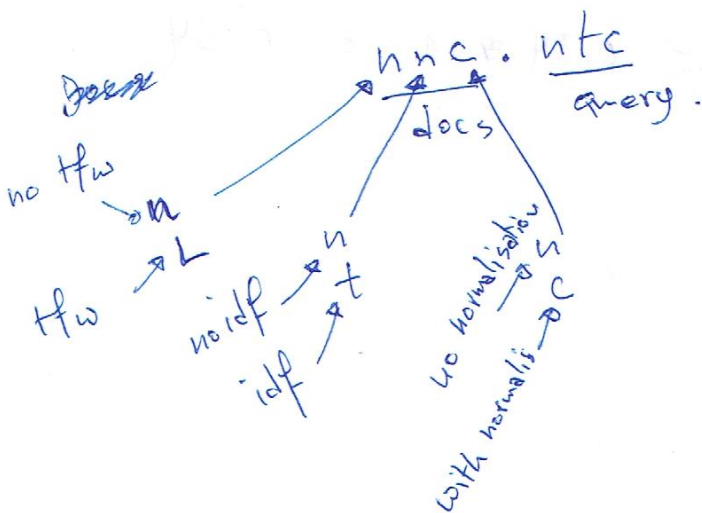 nnc. ntc
docs
query.
no tfw
n
L
tfw
n
t
no idf
idf
n
c
no normalisation
with normalis